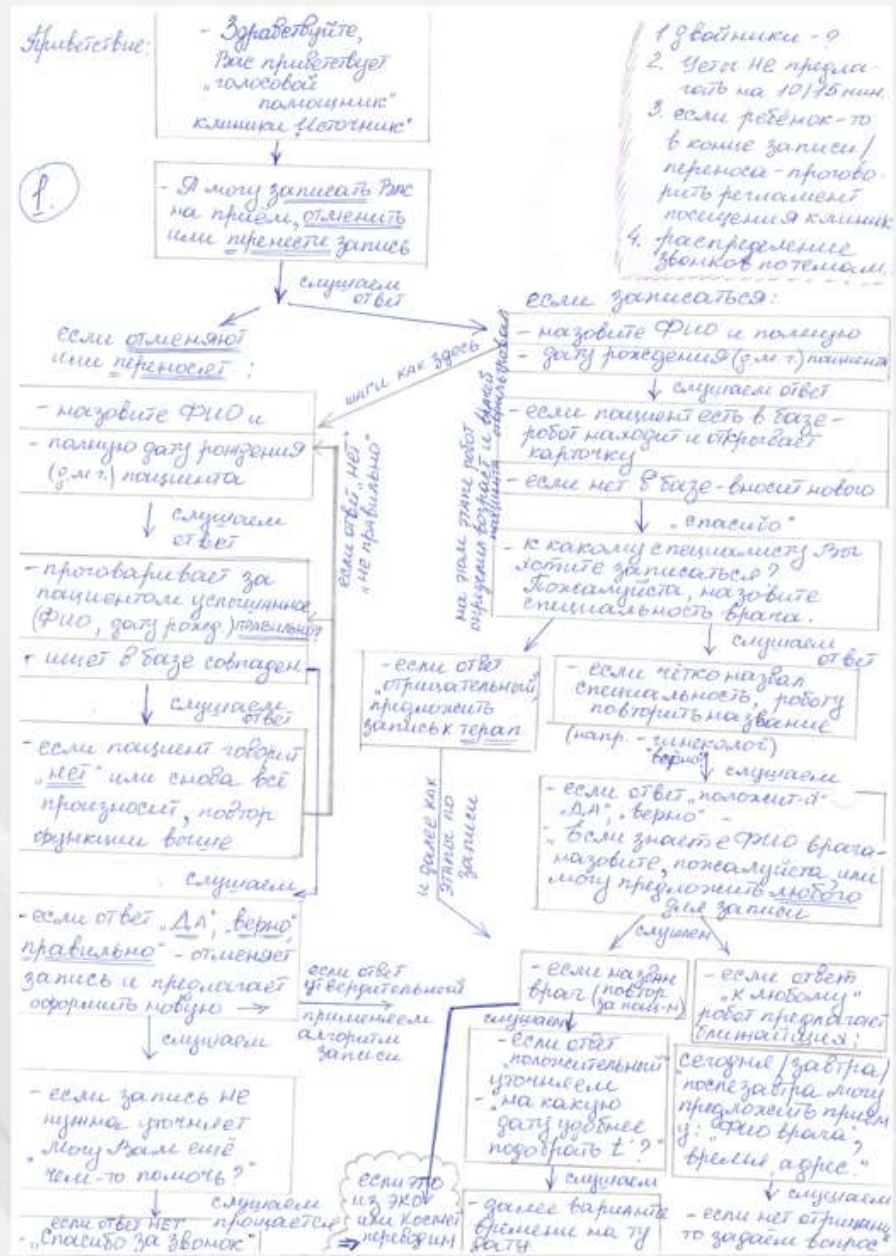 Приветствие:
- Здравствуйте,
Вас приветствует
„голосовой
помощник"
клиники „Источник"
1.
- Я могу записать Вас
на приём, отменить
или перенести запись
слушаем
ответ
1 двойники - ?
2. Четы НЕ предла-
гать на 10/15 мин.
3. если ребёнок - то
в конце записи/
переноса - прогово-
рить регламент
посещения клиник
4. распределение
звонков по темам.
если отменяют
или переносят:
- назовите ФИО и
- полную дату рождения
(д.м.г.) пациента
слушаем
ответ
- проговаривает за
пациентом услышанное
(ФИО, дату рожд.) правильно?
+ ищет в базе совпаден
слушаем
ответ
- если пациент говорит
„нет" или снова всё
произносит, повтор
функции выше
если ответ „нет"
„не правильно"
слушаем
- если ответ „ДА", верно,
правильно" - отменяет
запись и предлагает
оформить новую →
если ответ
утвердительный
применяем
алгоритм
записи
слушаем
- если запись не
нужна уточняет
„Могу Вам ещё
чем-то помочь?"
слушаем
если ответ НЕТ прощается
- „Спасибо за звонок"
шаги как здесь
если записаться:
- назовите ФИО и полную
- дату рождения (д.м.г.) пациента
слушаем ответ
- если пациент есть в базе -
робот находит и открывает
карточку
- если нет в базе - вносит нового
на этом этапе робот
определил возраст и
пациента
„спасибо"
- к какому специалисту Вы
хотите записаться?
Пожалуйста, назовите
специальность врача.
слушаем
ответ
- если ответ
„отрицательный"
предложить
запись к терап
и далее как
этапы по
записи
- если чётко назвал
специальность, роботу
повторить название
(напр. - гинеколог)
верно?
слушаем
- если ответ „положит-й" -
„ДА", „верно" -
- „Если знаете ФИО врача -
назовите, пожалуйста или
могу предложить любого
для записи
слушаем
- если назван
врач (повтор
за пац-м)
слушаем
- если ответ
„положительный"
уточняем
- „на какую
дату удобнее
подобрать t ?"
слушаем
- далее варианты
времени на ту
дату
если это
из ЭКО
или космет
переводим
- если ответ
„к любому"
робот предлагает
ближайшия:
сегодня/завтра/
послезавтра могу
предложить приём
у: „ФИО врача",
время, адрес."
слушаем
- если нет отриц
то задаем вопрос